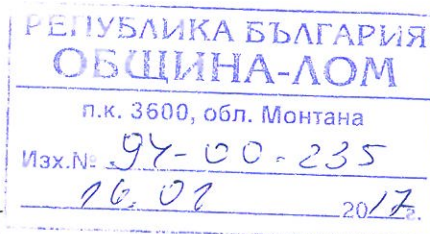 РЕПУБЛИКА БЪЛГАРИЯ
ОБЩИНА-ЛОМ
п.к. 3600, обл. Монтана
Изх.№ 94-00-235
16.01 2017г.